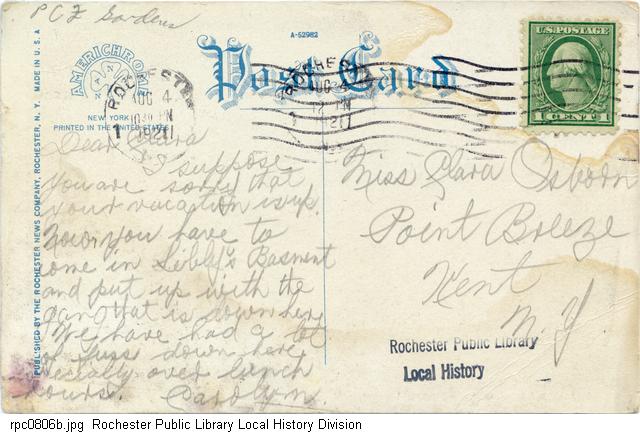 PCZ Gardens
A-52982
Post Card
AMERICHROME
NEW YORK
PRINTED IN THE UNITED STATES
PUBLISHED BY THE ROCHESTER NEWS COMPANY, ROCHESTER, N. Y. MADE IN U. S. A
ROCHESTER
AUG 4
10 30 PM
1921
ROCHESTER
AUG 4
PM
1921
U.S. POSTAGE
1 CENT 1
Dear Clara
I suppose
you are sorry that
your vacation is up.
Now you have to
come in Sibley's Basment
and put up with the
gang that is down here
We have had a lot
of fuss down here
specially over lunch
hours. Carolyn.
Miss Clara Osborn
Point Breeze
Kent
N. Y
Rochester Public Library
Local History
rpc0806b.jpg Rochester Public Library Local History Division